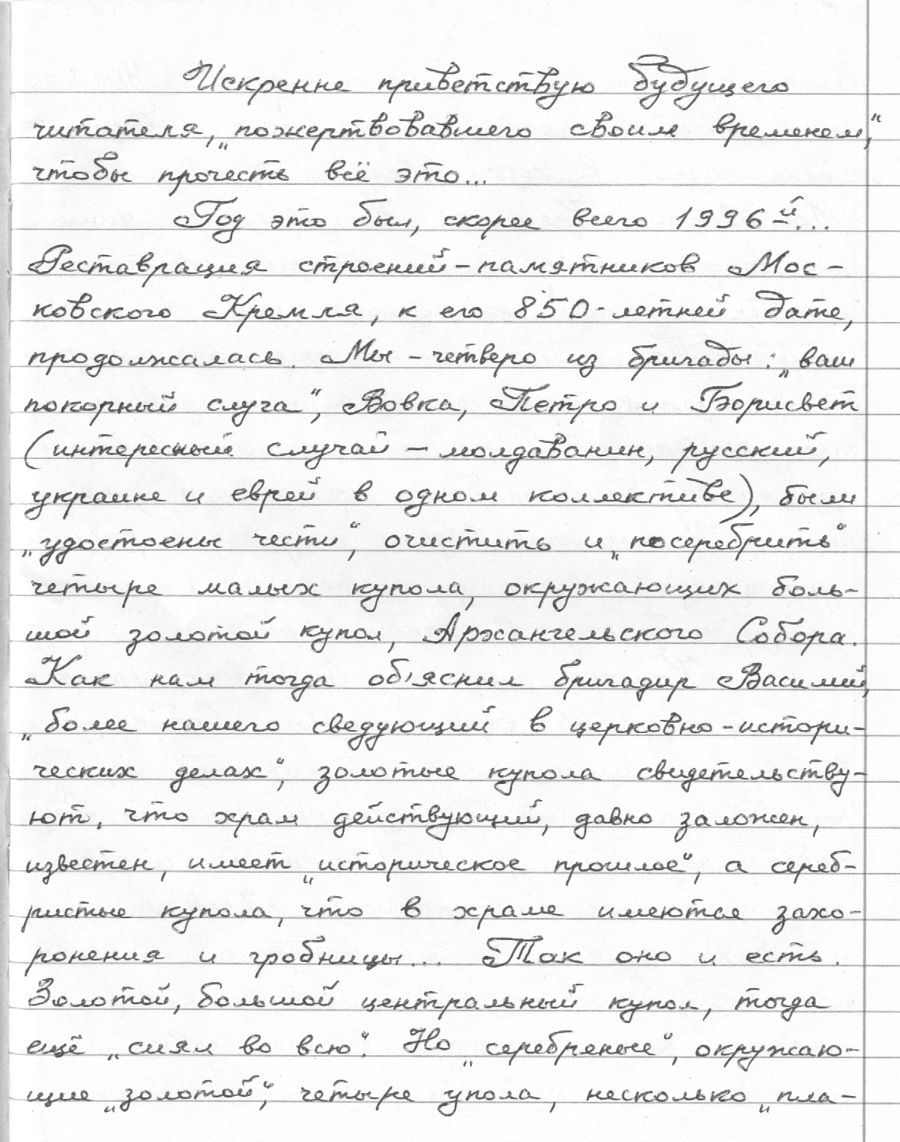 Искренне приветствую будущего
читателя, „пожертвовавшего своим временем“,
чтобы прочесть всё это...
Год это был, скорее всего 1996-й...
Реставрация строений-памятников Мос-
ковского Кремля, к его 850-летней дате,
продолжалась. Мы - четверо из бригады: „ваш
покорный слуга“, Вовка, Петро и Борисвет
(интересный случай - молдаванин, русский,
украине и еврей в одном коллективе), были
„удостоены чести“, очистить и „посеребрить“
четыре малых купола, окружающих боль-
шой золотой купол, Архангельского Собора.
Как нам тогда об'яснил бригадир Василий,
„более нашего сведующий в церковно-истори-
ческих делах“, золотые купола свидетельству-
ют, что храм действующий, давно заложен,
известен, имеет „историческое прошлое“, а сереб-
ристые купола, что в храме имеются захо-
ронения и гробницы... Так оно и есть.
Золотой, большой центральный купол, тогда
ещё „сиял во всю“. Но „серебреные“, окружаю-
щие „золотой“, четыре упола, несколько „пла-